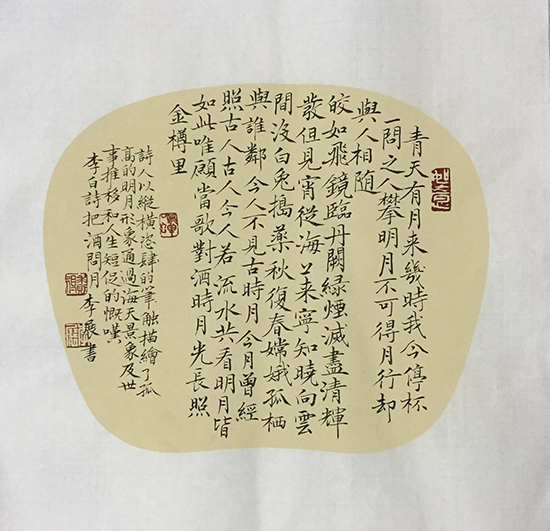 青天有月来幾時我今停杯
一問之人攀明月不可得月行却
與人相随
皎如飛鏡臨丹闕緑煙滅盡清輝
發但見宵從海上来寧知曉向雲
間没白兔搗藥秋復春嫦娥孤栖
與誰鄰今人不見古時月今月曾經
照古人古人今人若流水共看明月皆
如此唯願當歌對酒時月光長照
金樽里
詩人以縱横恣肆的筆触描繪了孤
高的明月形象通過海天景象及世
事推移和人生短促的慨嘆
李白詩把酒問月李展書